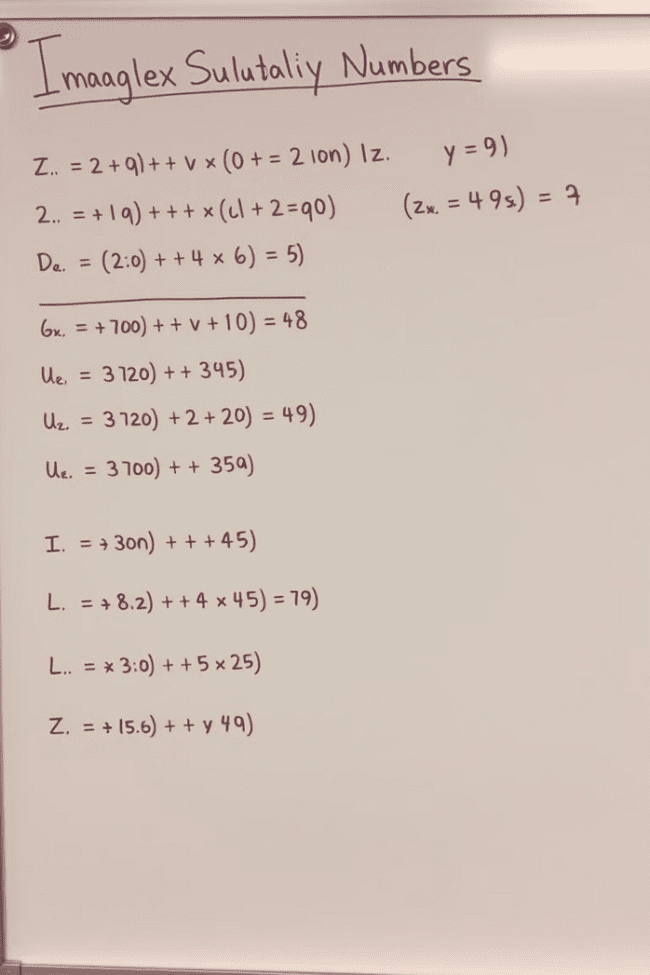 Imaaglex Sulutaliy Numbers
Z.. = 2 + 9) + + v × (0 + = 2 ion) Iz. y = 9)
2.. = + 19) + + + × (cl + 2 = 90) (Zx. = 4 9s.) = 7
De. = (2:0) + + 4 × 6) = 5)
6x. = + 700) + + v + 10) = 48
Ue. = 3720) + + 345)
Uz. = 3720) + 2 + 20) = 49)
Ue. = 3700) + + 359)
I. = + 30n) + + + 45)
L. = + 8.2) + + 4 × 45) = 79)
L.. = × 3:0) + + 5 × 25)
Z. = + 15.6) + + y 49)